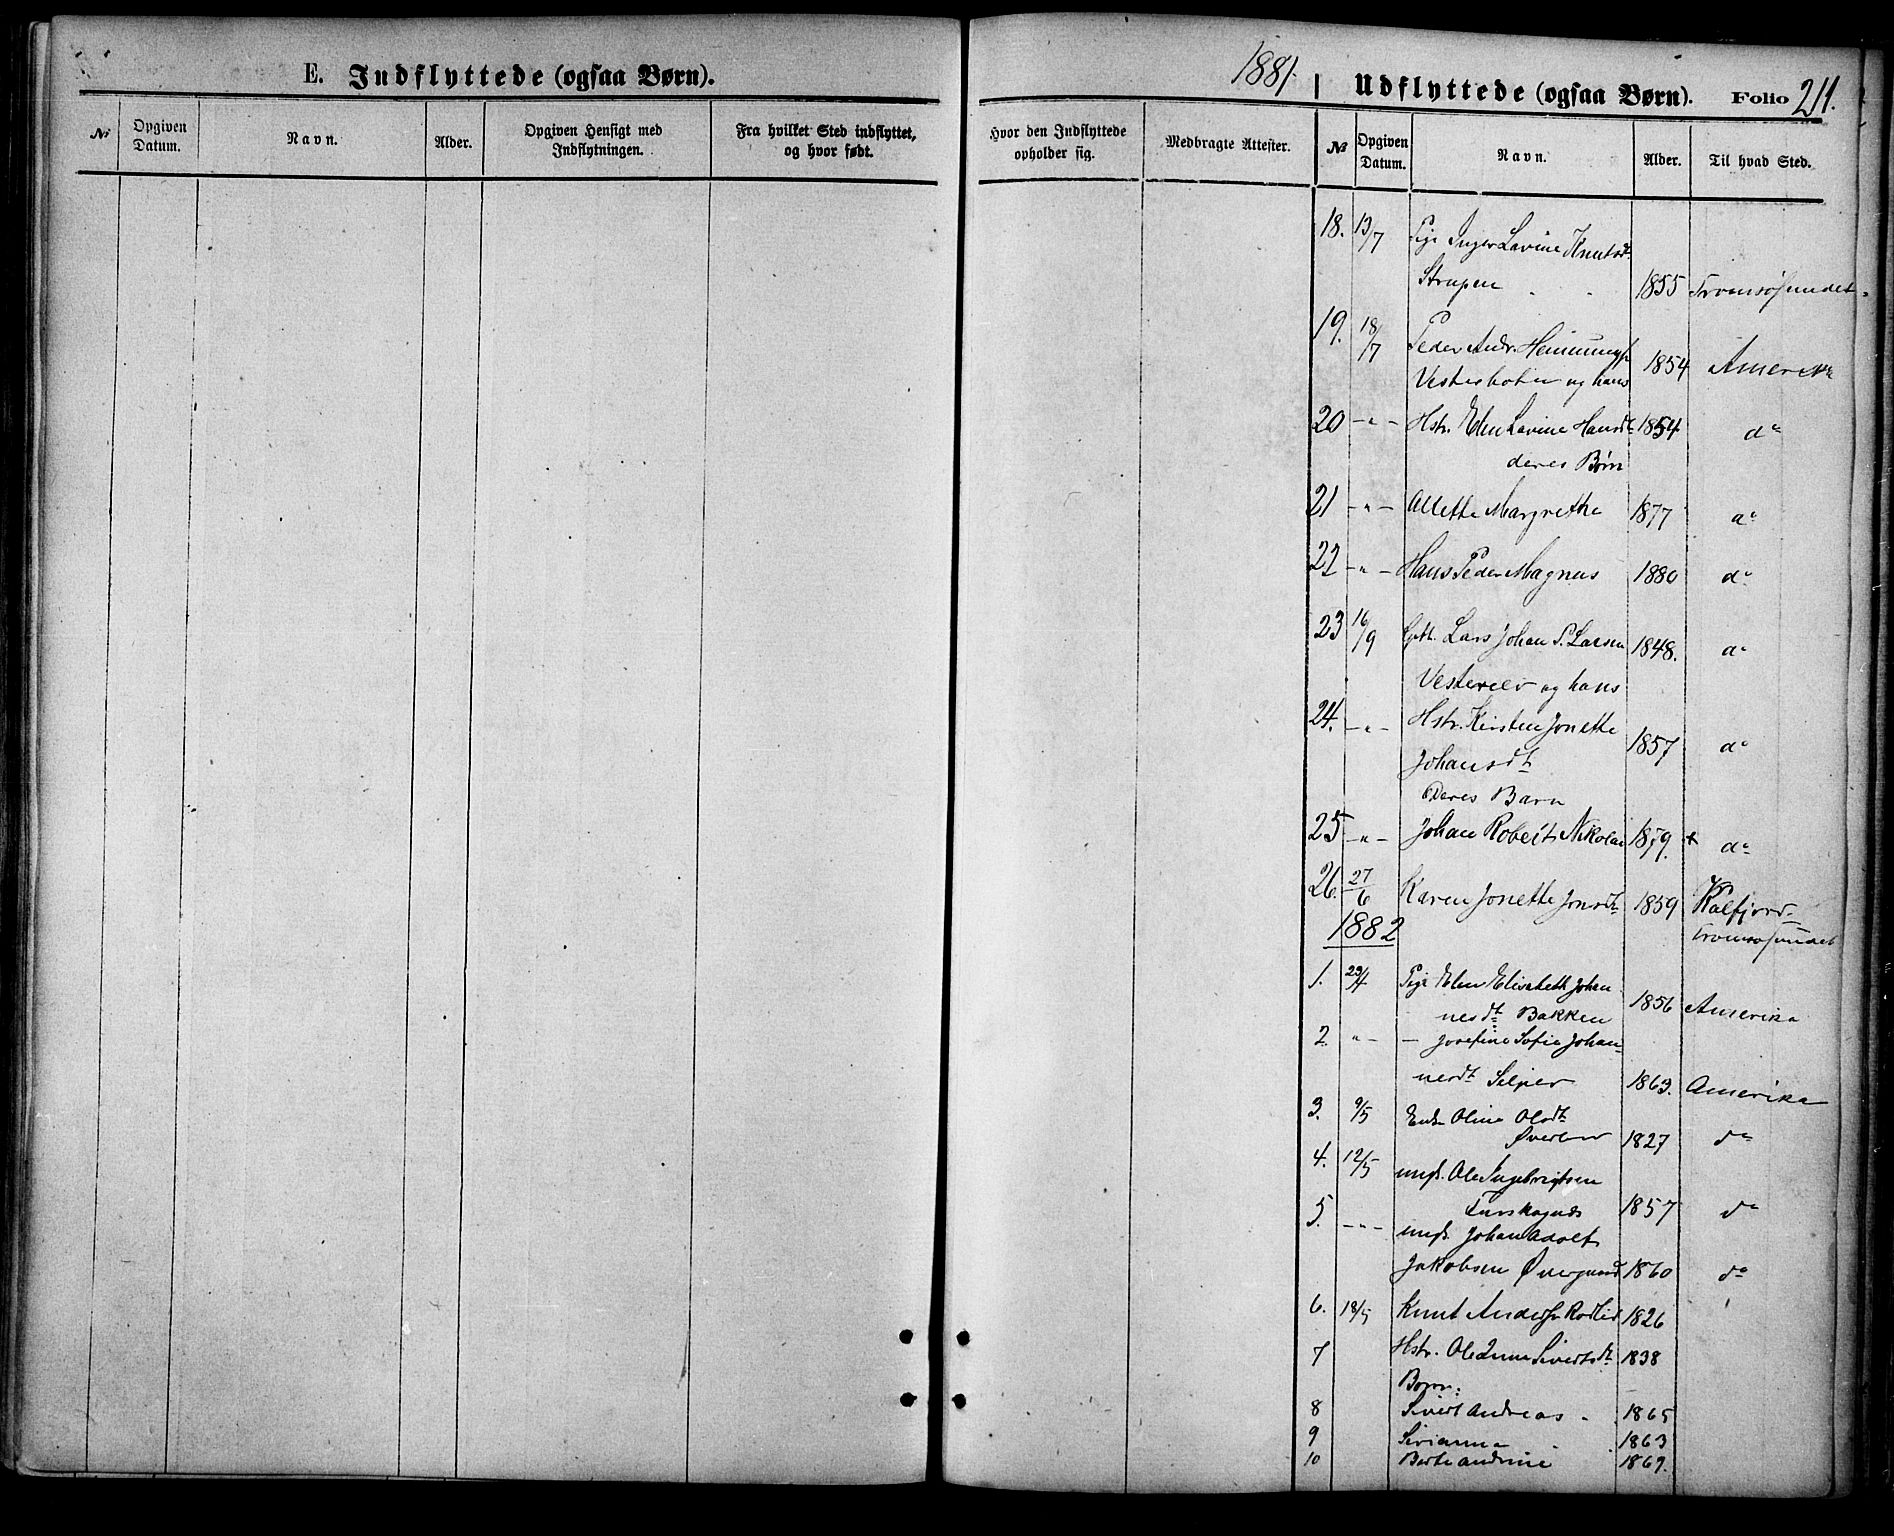 E. Indflyttede (ogsaa Børn).
№ Opgiven Datum. Navn. Alder. Opgiven Hensigt med Indflytningen. Fra hvilket Sted indflyttet, og hvor født.
1881. Udflyttede (ogsaa Børn). Folio 211.
Hvor den Indflyttede opholder sig. Medbragte Attester. № Opgiven Datum. Navn. Alder. Til hvad Sted.
18. 13/7 Pige Inger Lavine Knutsdt
Strupen 1855 Tromsøsundet
19. 18/7 Peder Andr. Hemmings.
og hans 1854 Amerika
20 -"- Hstr. Elen Lavine Hansdt 1854 do
deres Børn
21 -"- Allette Margrethe 1877 do
22 -"- Hans Peder Magnus 1880 do
23 16/9 Lars Johan P. Larsen 1848. do
Vesterelv og hans
24. -"- Hstr. Kirsten Jonette
Johansdt 1857 do
Deres Barn
25 -"- Johan Robert Nikolai 1879. + do
26. 27/6 Karen Jonette Jonsdt 1859 Kalfjord
1882 Tromsøsundet
1. 29/4 Pige Elen Elisabeth Johan
nesdt Bakken 1856 Amerika
2. " - - Josefine Sofie Johan-
nesdt 1863. Amerika
3. 9/5 Enke Oline Olsdt
1827 do
4. 12/5 ungk. Ole Ingebrigtsen
1857 do
5. -"- ungk. Johan Adolf
Jakobsen Øvergaard 1860 do
6. 18/5 Knut Anders. 1826
7 Hstr. Sivertsdt 1838
Børn:
8 Sivert Andreas 1865
9 Sivianna 1863
10 Berte Andrine 1869.